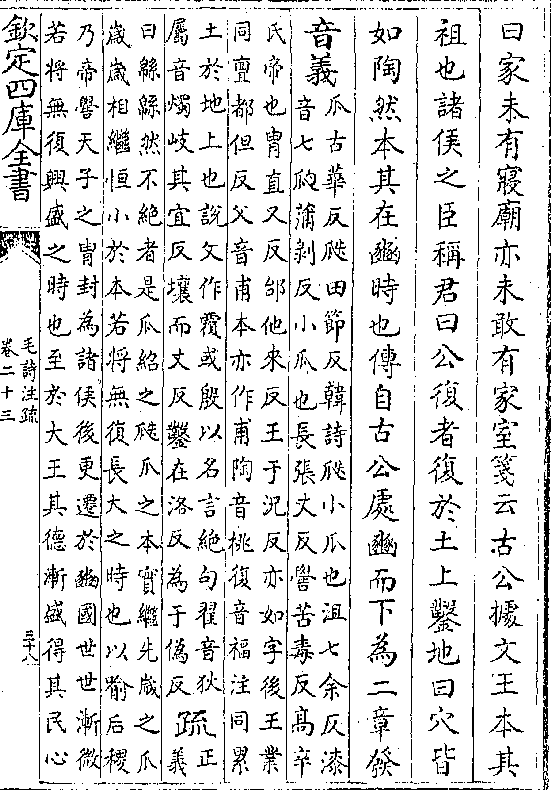 曰家未有寢廟亦未敢有家室箋云古公據文王本其
祖也諸侯之臣稱君曰公復者復於土上鑿地曰穴皆
如陶然本其在豳時也傳自古公處豳而下為二章發
音義
瓜古華反瓞田節反韓詩瓞小瓜也沮七余反漆
音七瓝蒲剥反小瓜也長張丈反嚳苦毒反高辛
氏帝也胄直又反邰他來反王于況反亦如字後王業
同亶都但反父音甫本亦作甫陶音桃復音福注同累
土於地上也說文作𥨍或殷以名言絶句翟音狄
屬音燭岐其宜反壤而丈反鑿在洛反為于偽反
疏
正
義
曰緜緜然不絶者是瓜紹之瓞瓜之本實繼先歲之瓜
歲歲相繼恒小於本若將無復長大之時也以喻后稷
乃帝嚳天子之胄封為諸侯後更遷於豳國世世漸微
若將無復興盛之時也至於大王其德漸盛得其民心
欽定四庫全書
毛詩注疏
卷二十三
三十八